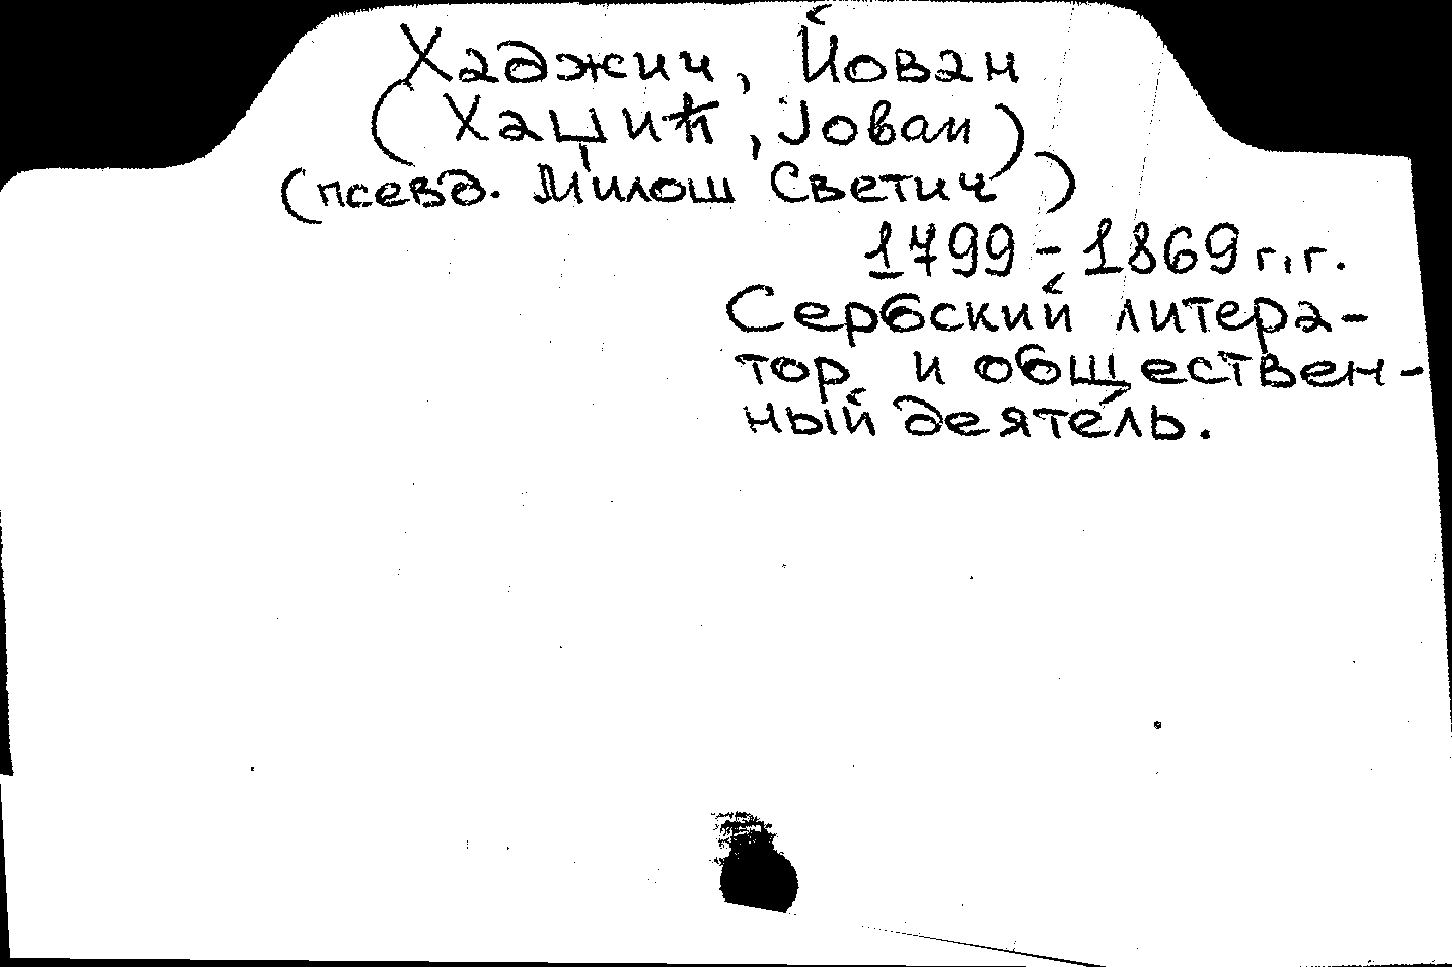 Хаджич, Йован
(Хаџић, Јован)
(псевд. Милош Светич)
1799-1869 г.г.
Сербский литера-
тор и обществен-
ный деятель.